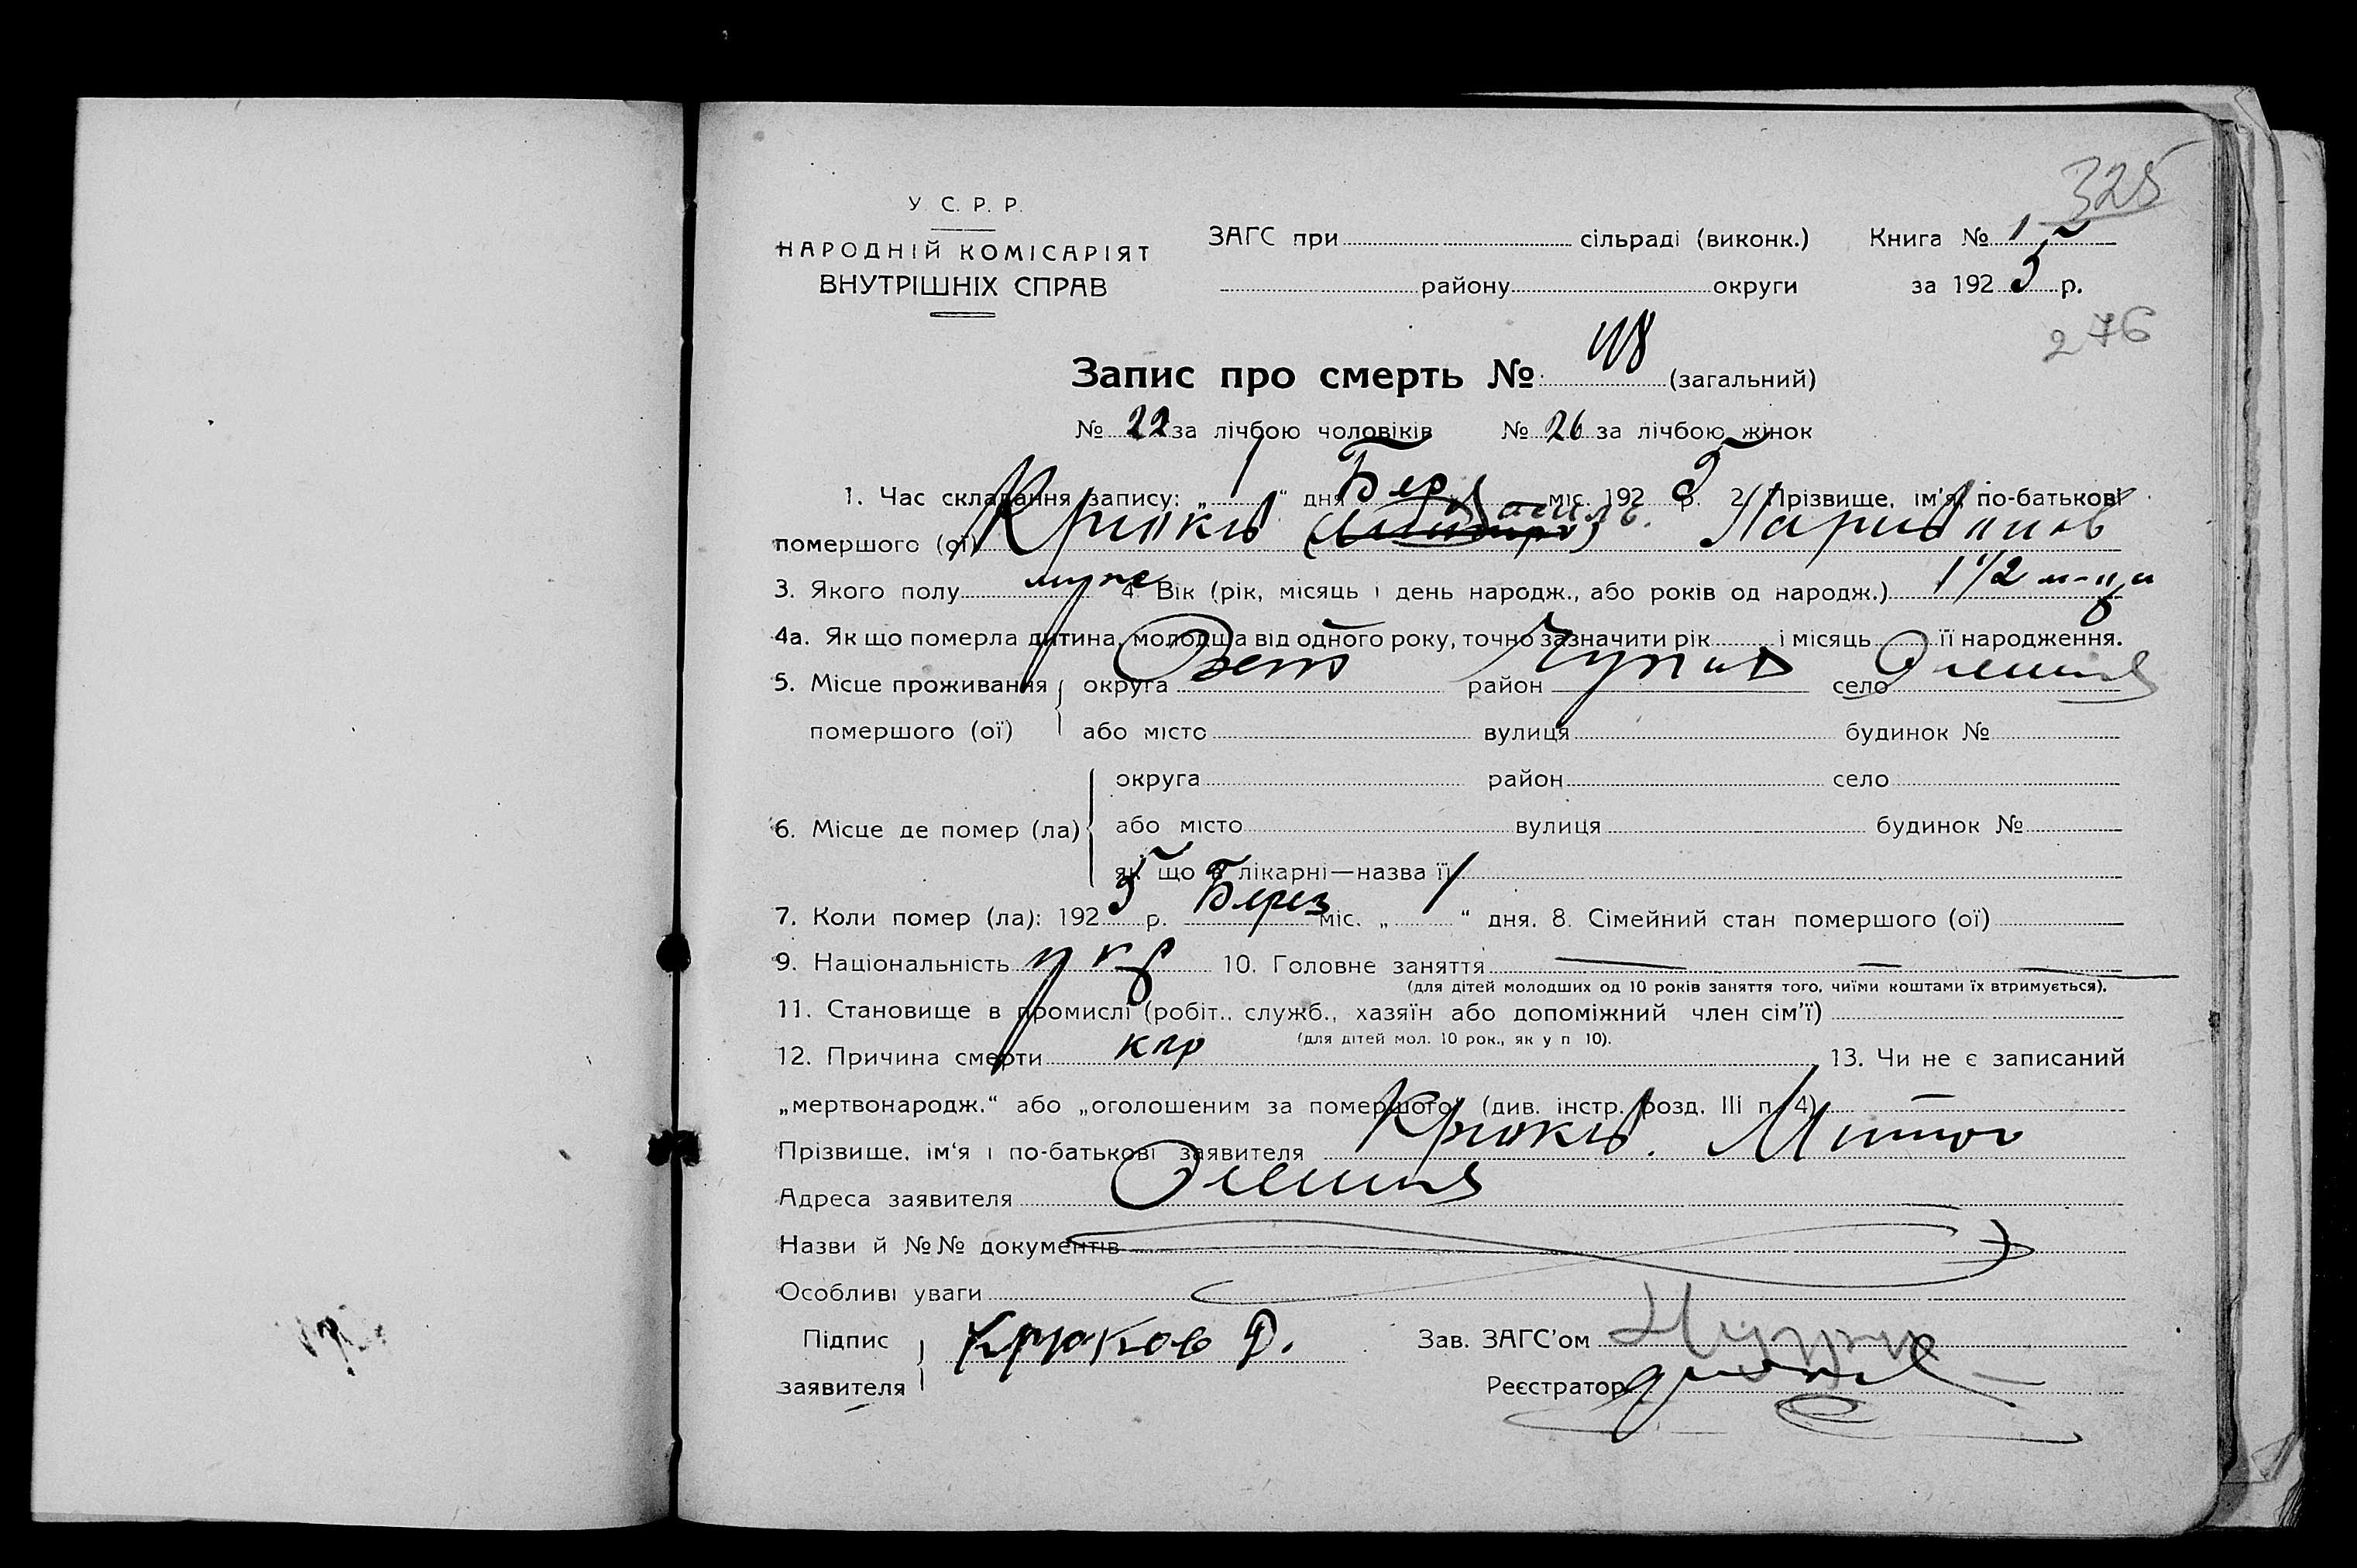 325
У. С. Р. Р.
НАРОДНІЙ КОМІСАРІЯТ
ВНУТРІШНІХ СПРАВ
ЗАГС при сільраді (виконк.) Книга № 1
району округи за 1925 р.
276
Запис про смерть № 48 (загальний)
№ 22 за лічбою чоловіків № 26 за лічбою жінок
1. Час складання запису: „1“ дня Бер міс. 1925 р. 2. Прізвище, ім'я, по-батькові
помершого (ої) Крюков
3. Якого полу муж 4. Вік (рік, місяць і день народж., або років од народж.) 1 1/2 м-ця
4а. Як що померла дитина, молодша від одного року, точно зазначити рік і місяць її народження.
5. Місце проживання округа район село
помершого (ої) або місто вулиця будинок №
округа район село
6. Місце де помер (ла) або місто вулиця будинок №
як що в лікарні—назва її
7. Коли помер (ла): 1925 р. Берез міс. „1“ дня. 8. Сімейний стан помершого (ої)
9. Національність укр 10. Головне заняття
(для дітей молодших од 10 років заняття того, чиїми коштами їх втримується).
11. Становище в промислі (робіт., служб., хазяїн або допоміжний член сім'ї)
(для дітей мол. 10 рок., як у п 10).
12. Причина смерти кпр 13. Чи не є записаний
„мертвонародж.“ або „оголошеним за помершого“ (див. інстр. розд. III п. 4) —
Прізвище, ім'я і по-батькові заявителя Крюков
Адреса заявителя
Назви й №№ документів
Особливі уваги
Підпис заявителя Крюков Д.
Зав. ЗАГС'ом
Реєстратор